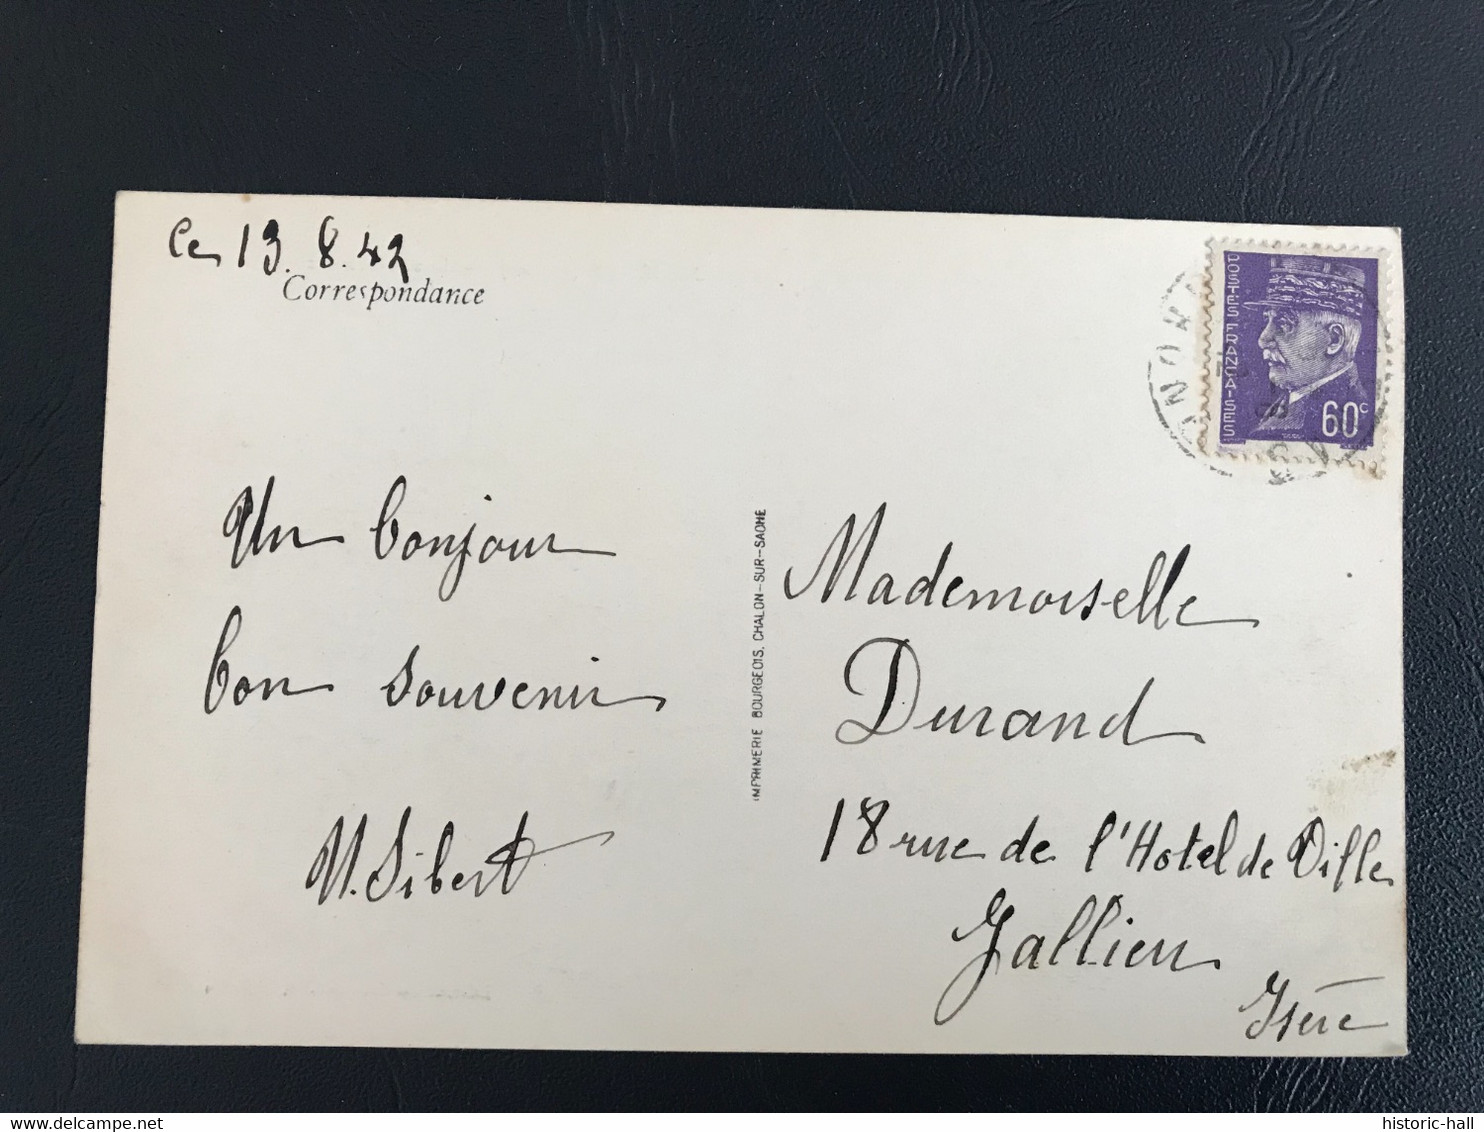 Ce 13.8.42
Correspondance
Un bonjour
bon souvenir
M. Sibert
IMPRIMERIE BOURGEOIS, CHALON-SUR-SAONE
POSTES FRANÇAISES
60c
Mademoiselle
Durand
18 rue de l'Hotel de Ville
Jallieu
Isère
historic-hall